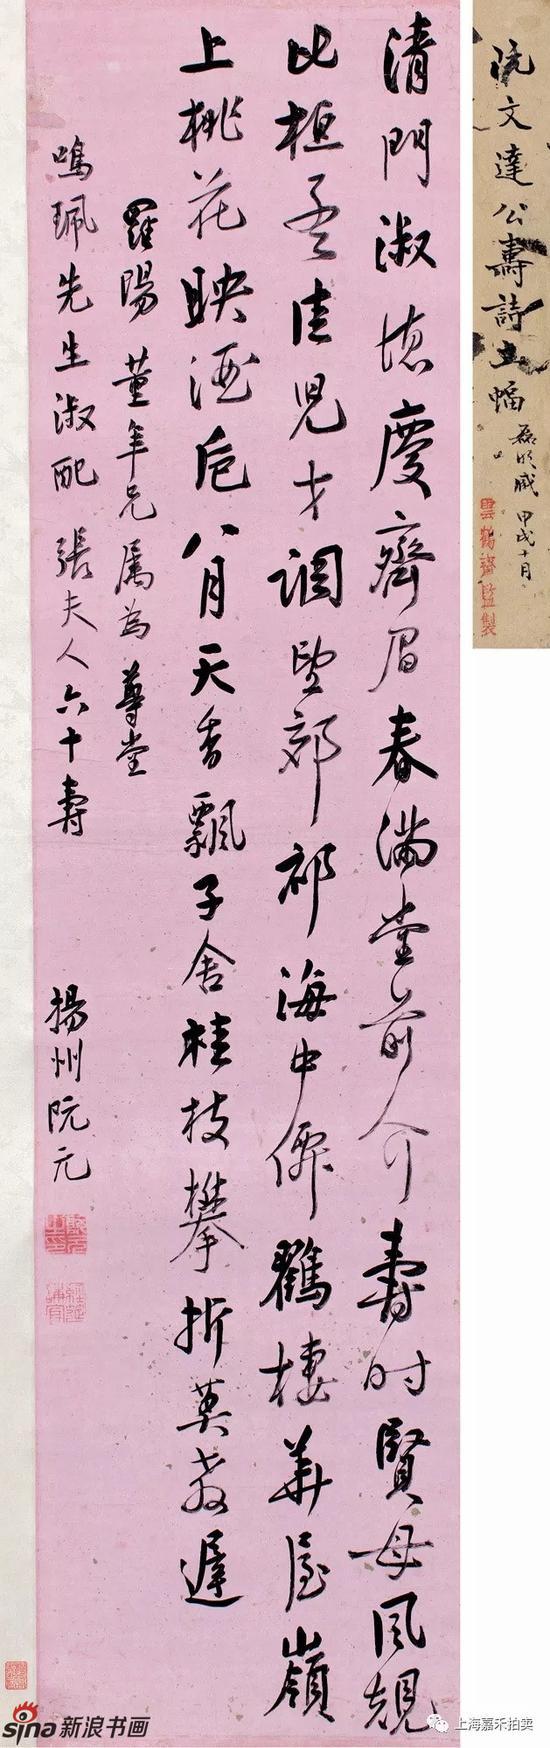 阮文達公壽詩立幅
甲戌十月
雲鶴齋監製
清門淑悳慶齊眉春滿堂前介壽时賢母風規
比桓孟佳兒才調望郊祁海中僊鶴棲華屋嶺
上桃花映酒卮八月天香飄子舍桂枝攀折莫教遲
羅陽董年兄屬為尊堂
鳴珮先生淑配張夫人六十壽
揚州阮元
sina新浪书画
上海嘉禾拍卖